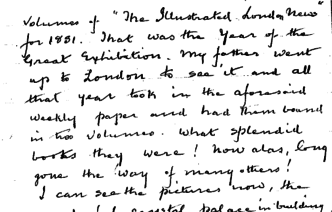 volumes of "The Illustrated London News"
for 1851. That was the Year of the
Great Exhibition. My father went
up to London to see it and all
that year took in the aforesaid
weekly paper and had them bound
in two volumes. What splendid
books they were! Now alas, long
gone the way of many others!
I can see the pictures now, the
crystal palace in building